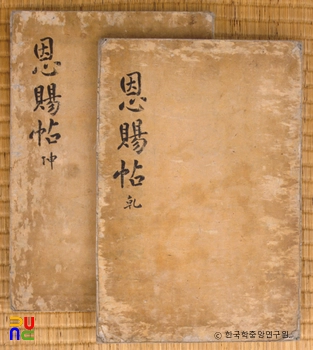 恩賜帖 乾
恩賜帖 坤
© 한국학중앙연구원